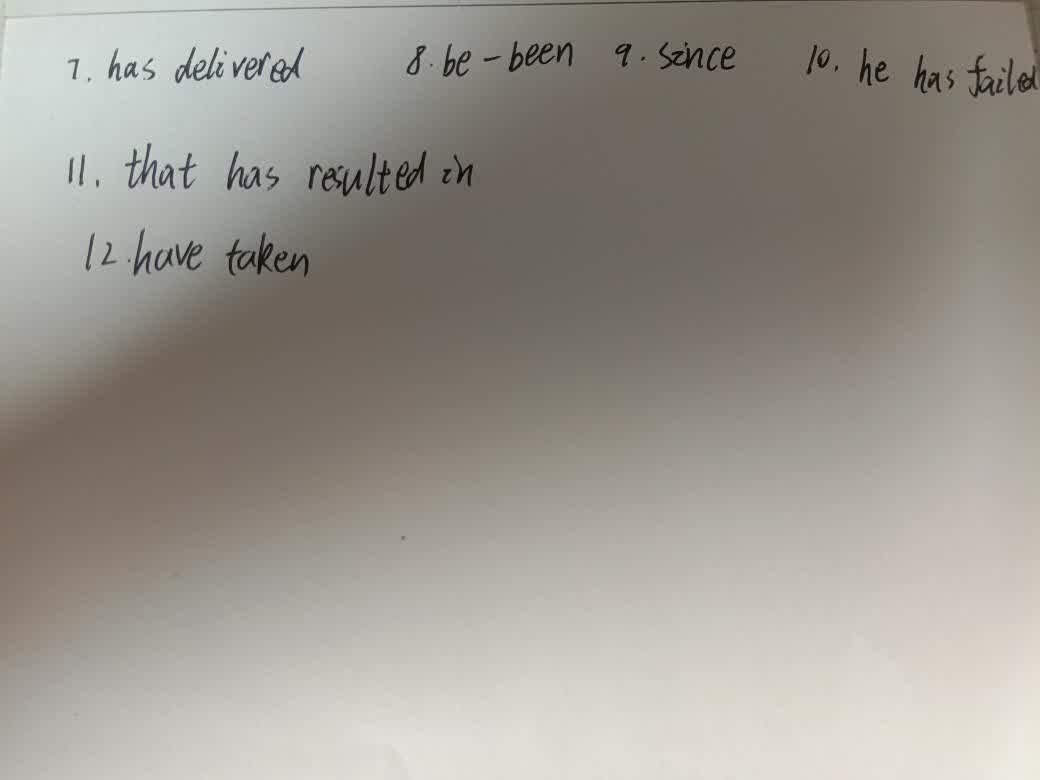 7. has delivered 8. be-been 9. since 10. he has failed
11. that has resulted in
12. have taken